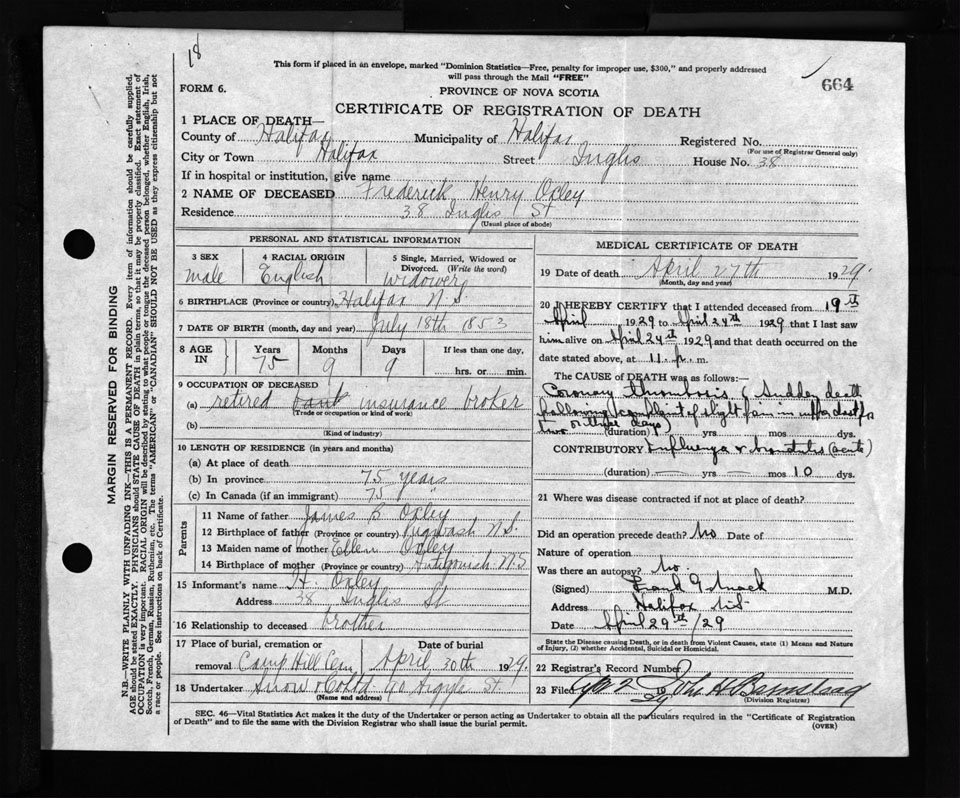 18
This form if placed in an envelope, marked "Dominion Statistics—Free, penalty for improper use, $300," and properly addressed
will pass through the Mail "FREE"
664
FORM 6.
PROVINCE OF NOVA SCOTIA
CERTIFICATE OF REGISTRATION OF DEATH
1 PLACE OF DEATH—
County of Halifax Municipality of Halifax Registered No.
(For use of Registrar General only)
City or Town Halifax Street Inglis House No. 38
If in hospital or institution, give name
2 NAME OF DECEASED Frederick Henry Oxley
Residence 38 Inglis St
(Usual place of abode)
PERSONAL AND STATISTICAL INFORMATION
3 SEX 4 RACIAL ORIGIN 5 Single, Married, Widowed or
Divorced. (Write the word)
male English Widower
6 BIRTHPLACE (Province or country) Halifax N.S.
7 DATE OF BIRTH (month, day and year) July 18th 1853
8 AGE IN Years Months Days If less than one day,
75 9 9 hrs. or min.
9 OCCUPATION OF DECEASED
(a) retired bank insurance broker
(Trade or occupation or kind of work)
(b)
(Kind of industry)
10 LENGTH OF RESIDENCE (in years and months)
(a) At place of death
(b) In province 75 years
(c) In Canada (if an immigrant) 75 "
Parents
11 Name of father James B Oxley
12 Birthplace of father (Province or country) Pugwash N.S.
13 Maiden name of mother Ellen Oxley
14 Birthplace of mother (Province or country) Antigonish N.S
15 Informant's name H. Oxley
Address 38 Inglis St
16 Relationship to deceased brother
17 Place of burial, cremation or Date of burial
removal Camp Hill Cem. April 30th 1929.
18 Undertaker Snow & Co Ltd 90 Argyle St
(Name and address)
MEDICAL CERTIFICATE OF DEATH
19 Date of death April 27th 1929.
(Month, day and year)
20 I HEREBY CERTIFY that I attended deceased from 19th
April 1929 to April 24th 1929 that I last saw
him alive on April 24th 1929 and that death occurred on the
date stated above, at 11 p. m.
The CAUSE OF DEATH was as follows:—
Coronary thrombosis (Sudden death
following complaint of slight pain in upper chest for
two or three days)
(duration) yrs mos dys.
CONTRIBUTORY Influenza & bronchitis (acute)
(duration) yrs mos 10 dys.
21 Where was disease contracted if not at place of death?
Did an operation precede death? No Date of
Nature of operation
Was there an autopsy? No.
(Signed) M.D.
Address Halifax N.S.
Date April 29th /29
State the Disease causing Death, or in death from Violent Causes, state (1) Means and Nature
of Injury, (2) whether Accidental, Suicidal or Homicidal.
22 Registrar's Record Number
23 Filed 19
(Division Registrar)
SEC. 46—Vital Statistics Act makes it the duty of the Undertaker or person acting as Undertaker to obtain all the particulars required in the "Certificate of Registration
of Death" and to file the same with the Division Registrar who shall issue the burial permit.
(OVER)
MARGIN RESERVED FOR BINDING
N.B.—WRITE PLAINLY WITH UNFADING INK—THIS IS A PERMANENT RECORD. Every item of information should be carefully supplied.
AGE should be stated EXACTLY. PHYSICIANS should STATE CAUSE OF DEATH in plain terms, so that it may be properly classified. Exact statement of
OCCUPATION is very important. RACIAL ORIGIN will be described by stating to what people or tongue the deceased person belonged, whether English, Irish,
Scotch, French, German, Russian, Ruthenian, etc. The terms "AMERICAN" or "CANADIAN" SHOULD NOT BE USED as they express citizenship but not
a race or people. See instructions on back of Certificate.